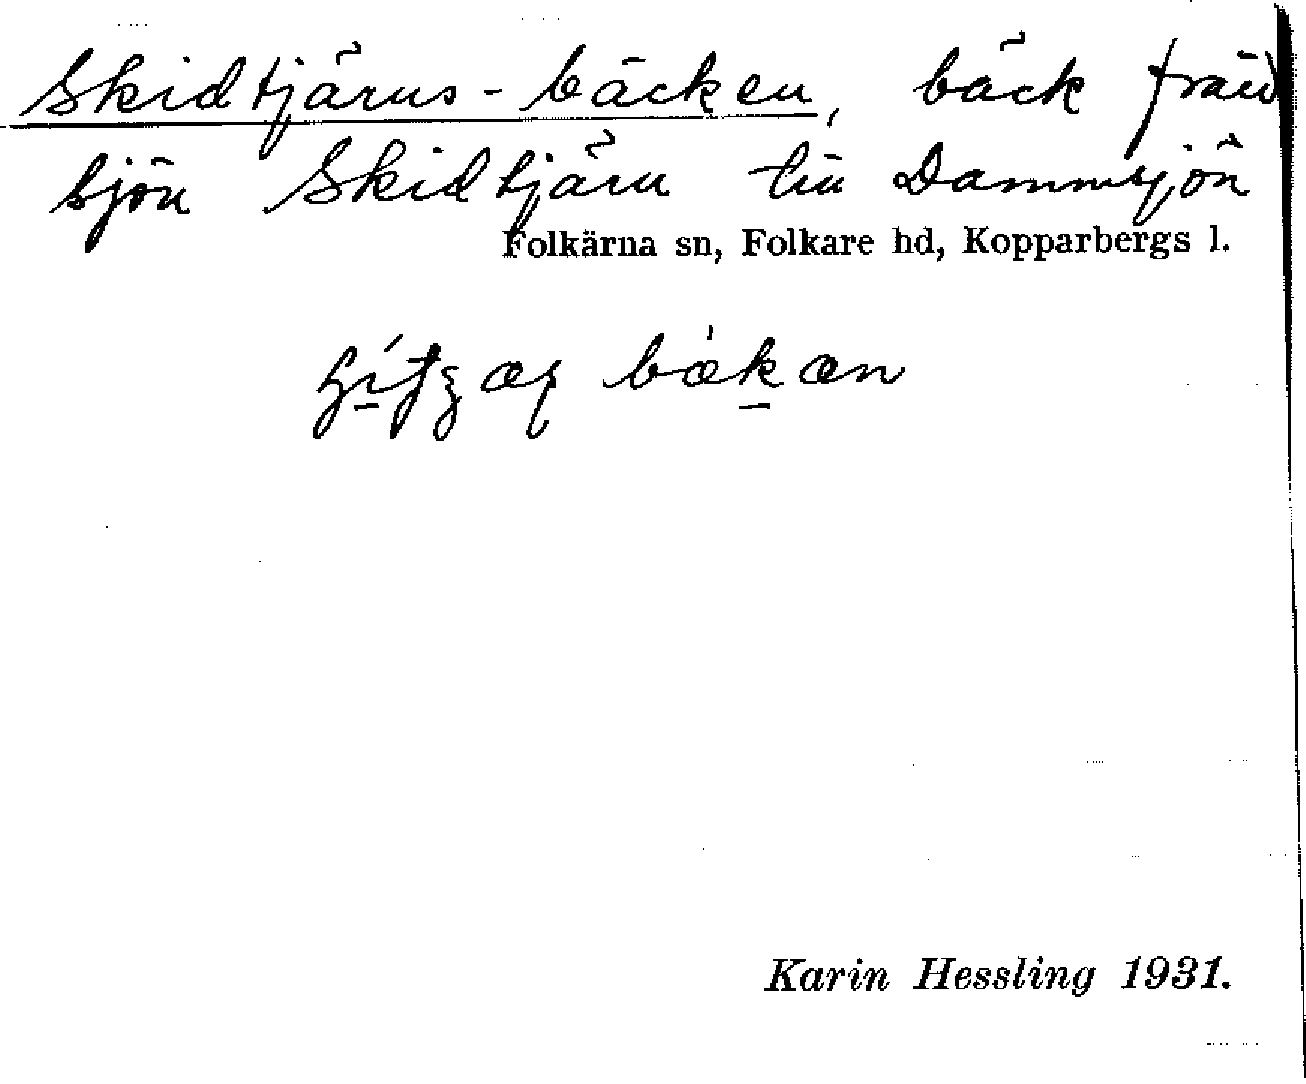 Skidtjärns-bäcken, bäck från
sjön Skidtjärn till Dammsjön
Folkärna sn, Folkare hd, Kopparbergs l.
Karin Hessling 1931.